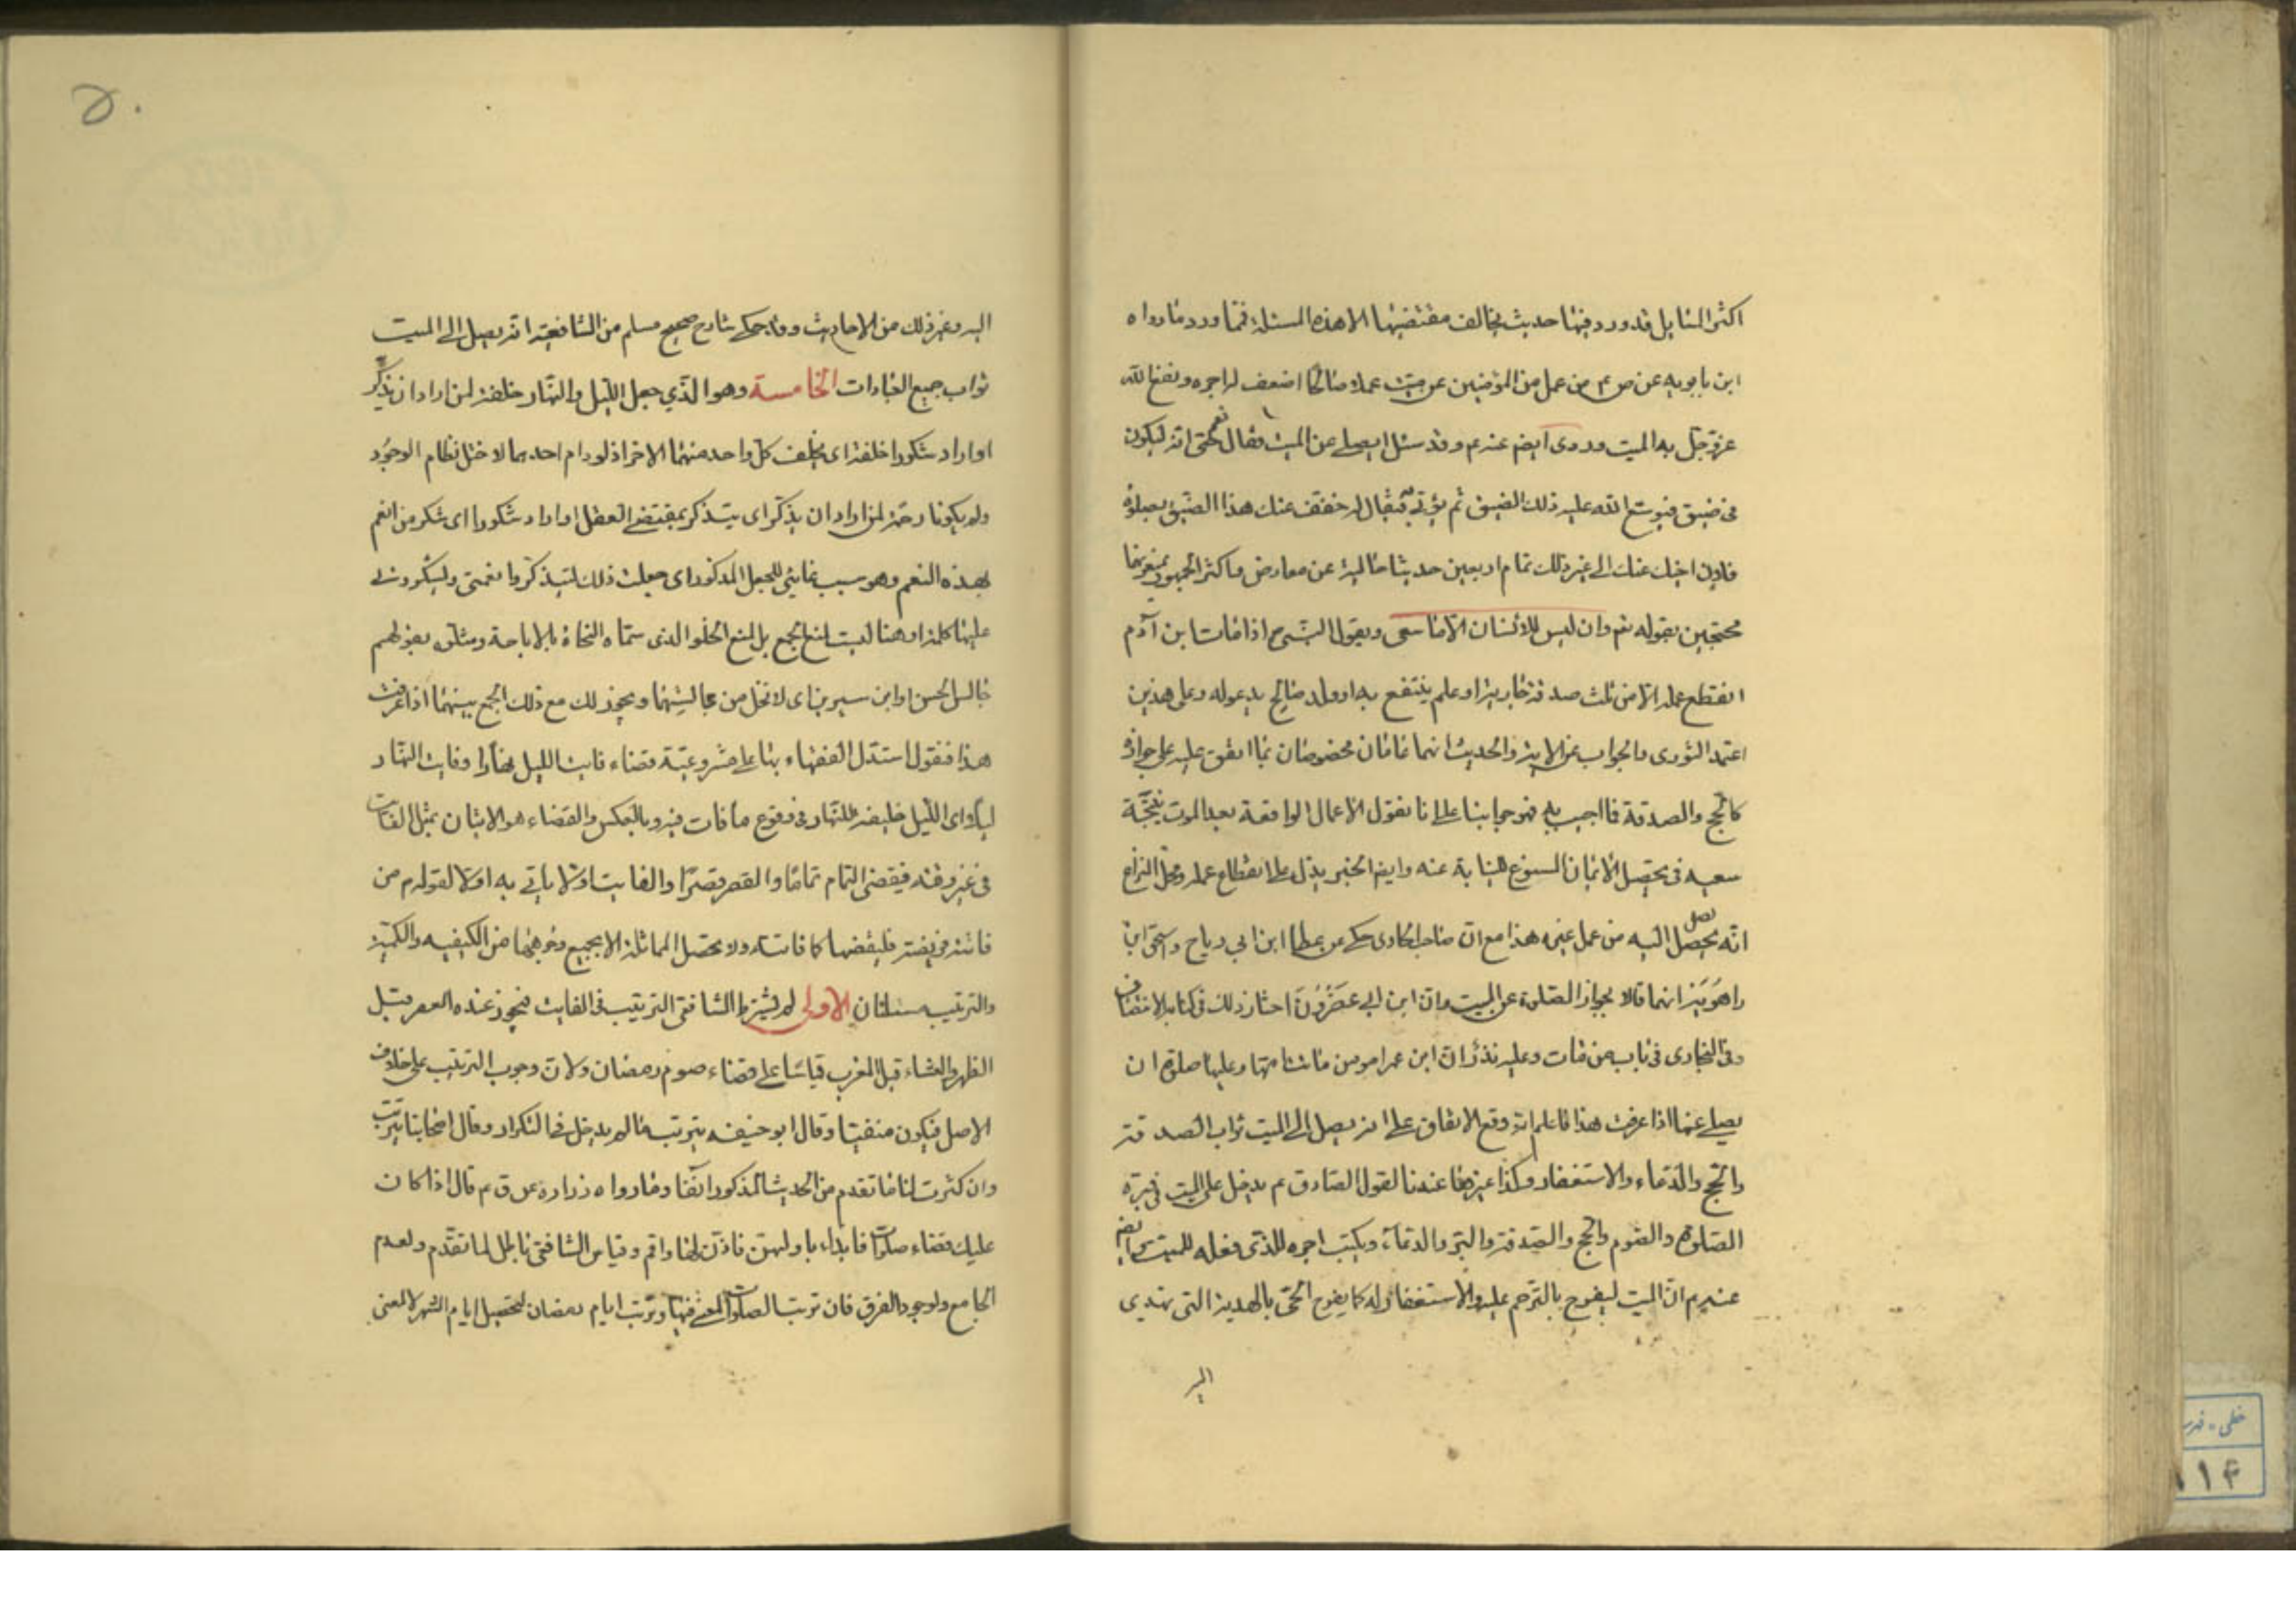 اكثر المسايل قد ورد فيها حديث يخالف مقتضيها الا هذه المسئلة فمما ورد ما رواه
ابن بابويه عن ص ع م من عمل من المؤمنين عن ميت عملا صالحا اضعف له اجره ونفع الله
عز وجل به الميت وروى ايض عنه ع م وقد سئل ايصلى عن الميت فقال نعم حتى انه ليكون
فى ضيق فيوسع الله عليه ذلك الضيق ثم يؤتى فيقال له خفف عنك هذا الضيق بصلوة
فلان اخيك عنك الى غير ذلك تمام اربعين حديثا خالية عن معارض واكثر الجمهور بمنع
محتجين بقوله تعم وان ليس للانسان الا ما سعى وبقول النبى ص اذا مات ابن آدم
انقطع عمله الا من ثلث صدقة جارية او علم ينتفع به او ولد صالح يدعو له وعلى هذين
اعتمد النورى والجواب عن الاية والحديث انهما عامان مخصوصان بما اتفق عليه على جوازه
كالحج والصدقة فما اجيب به فهو جوابنا على انا نقول الاعمال الواقعة بعد الموت نتيجة
سعيه فى تحصيل الايمان المسوغ للنيابة عنه وايض الخبر يدل على انقطاع عمله ومحل النزاع
انه يحصل يصل اليه من عمل غيره هذا مع ان صاحب الحاوى حكى عن عطا ابن ابى رياح واسحق ابن
راهويه انهما قالا بجواز الصلوة عن الميت وان ابن ابى عصرون اختار ذلك فى كتابه الانتصاف
وفى البخارى فى باب من مات وعليه نذر ان ابن عمر امر من ماتت امها وعليها صلوة ان
يصلى عنها اذا عرفت هذا فاعلم انه وقع الاتفاق على انه يصل الى الميت ثواب الصدقة
والحج والدعاء والاستغفار وكذا غيرها عندنا لقول الصادق ع م يدخل على الميت فى قبره
الصلوة والصوم والحج والصدقة والبر والدعاء ويكتب اجره للذى فعله للميت وايض
عنه ع م ان الميت ليفرح بالترحم عليه والاستغفار له كما يفرح الحى بالهدية التى تهدى
اليه
٥٠
اليه وغير ذلك من الاحاديث وقد حكى شارح صحيح مسلم من الشافعية انه يصل الى الميت
ثواب جميع العبادات الخامسة وهو الذي جعل الليل والنهار خلفة لمن اراد ان يذكر
او اراد شكورا خلفة اى يخلف كل واحد منهما الاخر اذ لو دام احدهما لاختل نظام الوجود
ولم يكونا رحمة لمن اراد ان يذكر اى يتذكر بمقتضى العقل او اراد شكورا اى شكر من انعم
بهذه النعم وهو سبب غايئى للجعل المذكور اى جعلت ذلك ليتذكروا نعمتى وليشكرونى
عليها كلمة او هنا ليست لمنع الجمع بل لمنع الخلو الذى سماه النحاة بالاباحة ومثلوه بقولهم
جالس الحسن او ابن سيرين اى لا تخل من مجالستهما ويجوز لك مع ذلك الجمع بينهما اذا عرفت
هذا فنقول استدل الفقهاء بها على مشروعية قضاء فايت الليل نهارا وفايت النهار
ليلا اى الليل خليفة للنهار فى وقوع ما فات فيه وبالعكس والقضاء هو الاتيان بمثل الفايت
فى غير وقته فيقضى التمام تماما والقصر قصرا والفايت اولا ياتى به اولا لقوله ع م من
فاتته فريضة فليقضها كما فاتته ولا تحصل المماثلة الا بجميع وجوهها من الكيفيه والكمية
والترتيب مسئلتان الاولى لم يشترط الشافعى الترتيب فى الفايت فيجوز عنده العصر قبل
الظهر والعشاء قبل المغرب قياسا على قضاء صوم رمضان ولان وجوب الترتيب على خلاف
الاصل فيكون منفيا وقال ابو حنيفه بترتيب ما لم يدخل فى التكرار وقال اصحابنا يترتب
وان كثرت لنا ما تقدم من الحديث المذكور انفا وما رواه زراره عن ق ع م قال اذا كان
عليك قضاء صلوات فابداء باولهن فاذن لها واقم وقياس الشافعى باطل لما تقدم ولعدم
الجامع ولوجود الفرق فان ترتيب الصلوات لمعنى فيها وترتيب ايام رمضان لتحصيل ايام الشهر لا لمعنى
خطى - فهرست